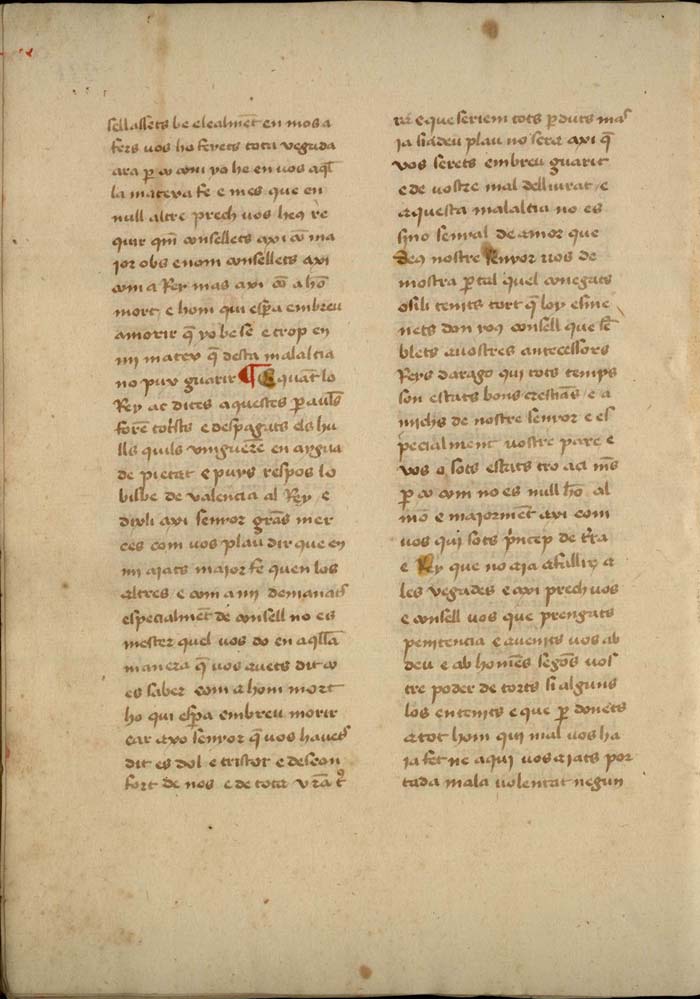 sellassets be elealmēt en mos a
fers vos ho ferets tota vegada
ara p̄ ço com yo he en vos aq̄lla
la mateya fe e mes que en
null altre prech vos heus re
quir qm̄ consellets axi cō ma
jor obs e nom consellets axi
com a Rey mas axi cō a hō
mort e hom qui esp̄a em breu
a morir q̄ yo be se e crop en
mi matey q̄ desta malaltia
no puy guarir ¶ E quāt lo
Rey ac dites aquestes paules
forē tots e despagats els hu
lls quils vingueren en aygua
de pietat e puys respos lo
bisbe de valencia al Rey e
dixli axi senyor grās mer
ces com vos plau dir que en
mi aiats maior fe quen los
altres e com a mi demanats
especialmēt de consell no es
mester quel vos do en aq̄lla
manera q̄ vos avets dit ço
es saber com a hom mort
ho qui esp̄a em breu morir
car axo senyor q̄ vos havets
dit es dol e tristor e descon
fort de nos e de tota vr̄a t̄
ra e que seriem tots p̄duts mas
ja si a deu plau no sera axi q̄
vos serets em breu guarit
e de vostre mal dellivrat e
aquesta malaltia no es
sino senyal de amor que
deus nostre senyor vos de
mostra p̄ tal quel conegats
o sili tenits tort q̄ loy esme
nets don vos consell que sē
blets a vostres antecessors
Reys darago qui tots temps
son estats bons crestiās e a
michs de nostre senyor e es
pecialment vostre pare e
vos o sots estats tro aci mēs
p̄ ço com no es null hō al
mō e majormēt axi com
vos qui sots p̄ncep de t̄ra
e Rey que no aja a fallir a
les vegades e axi prech vos
e consell vos que prengats
penitencia e avenits vos ab
deu e ab homēs segōs vos
tre poder de torts si alguns
los en tenits e que p̄donets
a tot hom qui mal vos ha
ja fet ne aqui vos aiats por
tada mala volentat negun